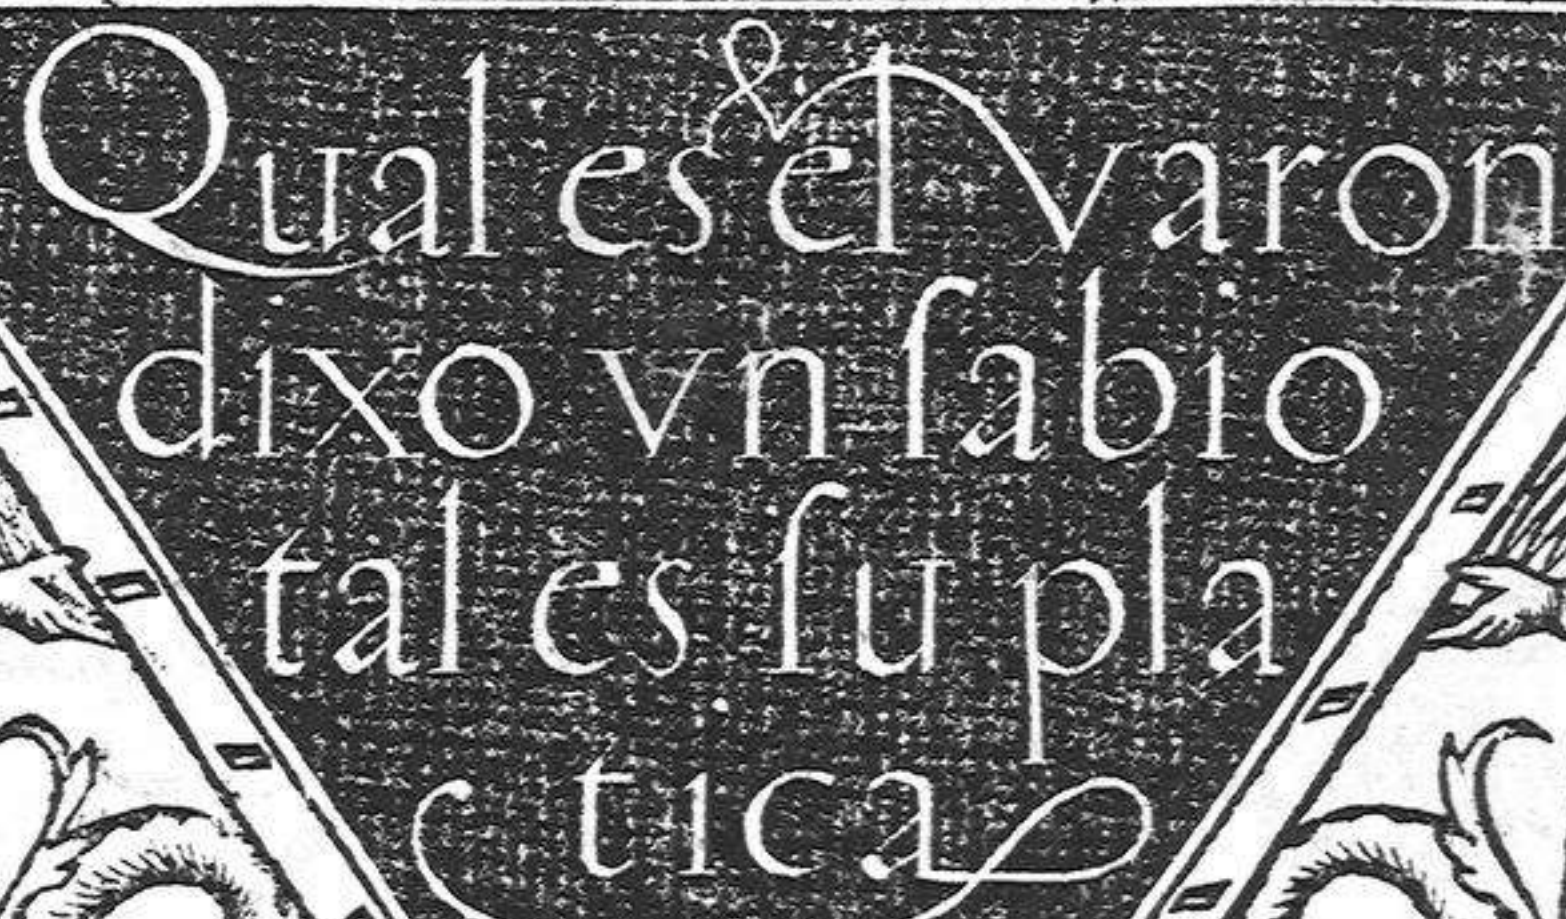 Qual es el varon
dixo vn ſabio
tal es ſu pla
tica